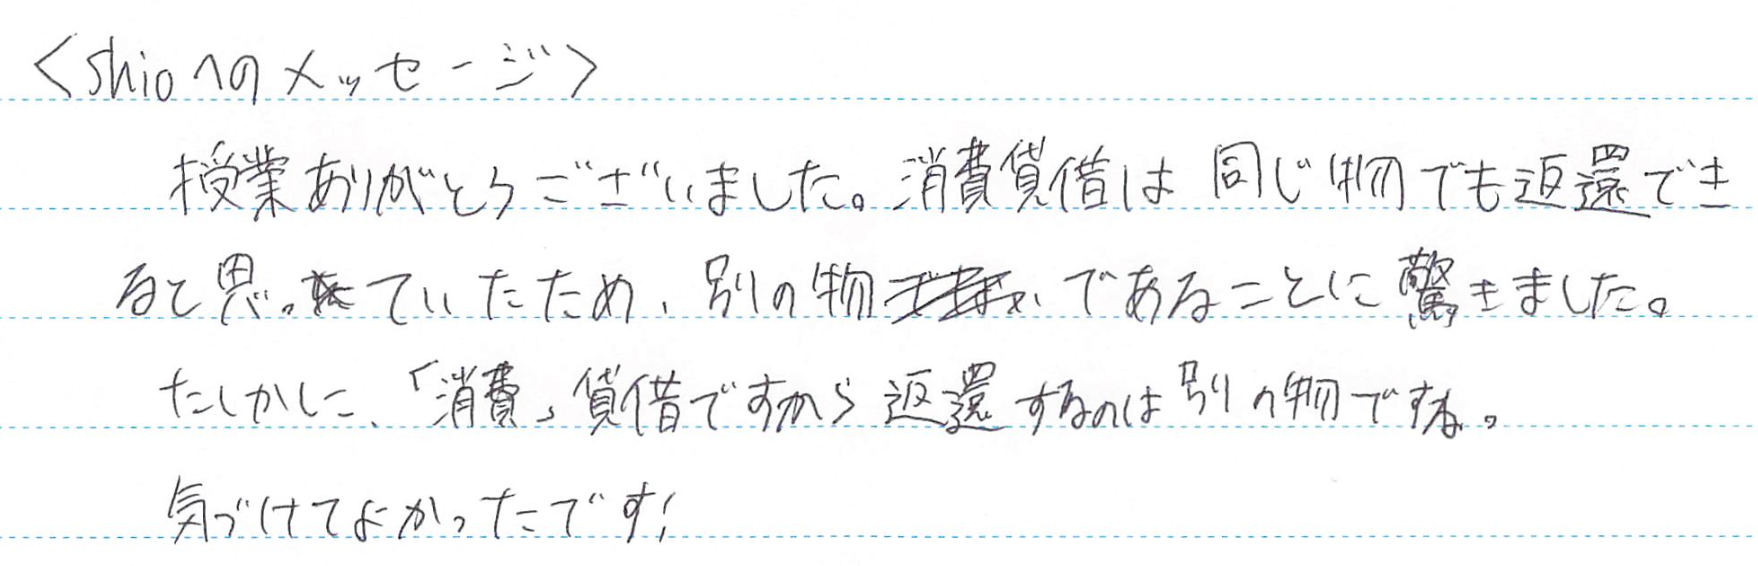 <shioへのメッセージ>
授業ありがとうございました。消費貸借は同じ物でも返還でき
ると思っていたため、別の物であることに驚きました。
たしかに、「消費」貸借ですから返還するのは別の物ですね。
気づけてよかったです!